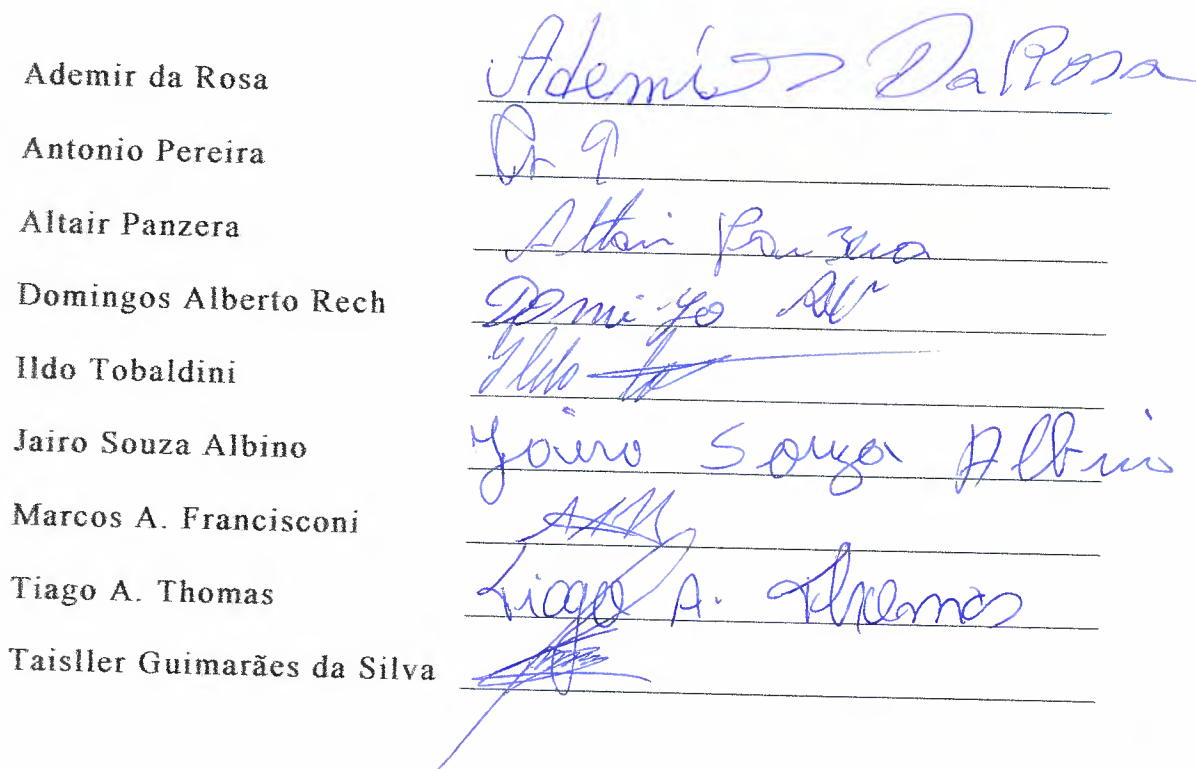 Ademir da Rosa Ademir Da Rosa
Antonio Pereira
Altair Panzera Altair Panzera
Domingos Alberto Rech
Ildo Tobaldini Ildo
Jairo Souza Albino Jairo Souza Albino
Marcos A. Francisconi
Tiago A. Thomas Tiago A. Thomas
Taisller Guimarães da Silva